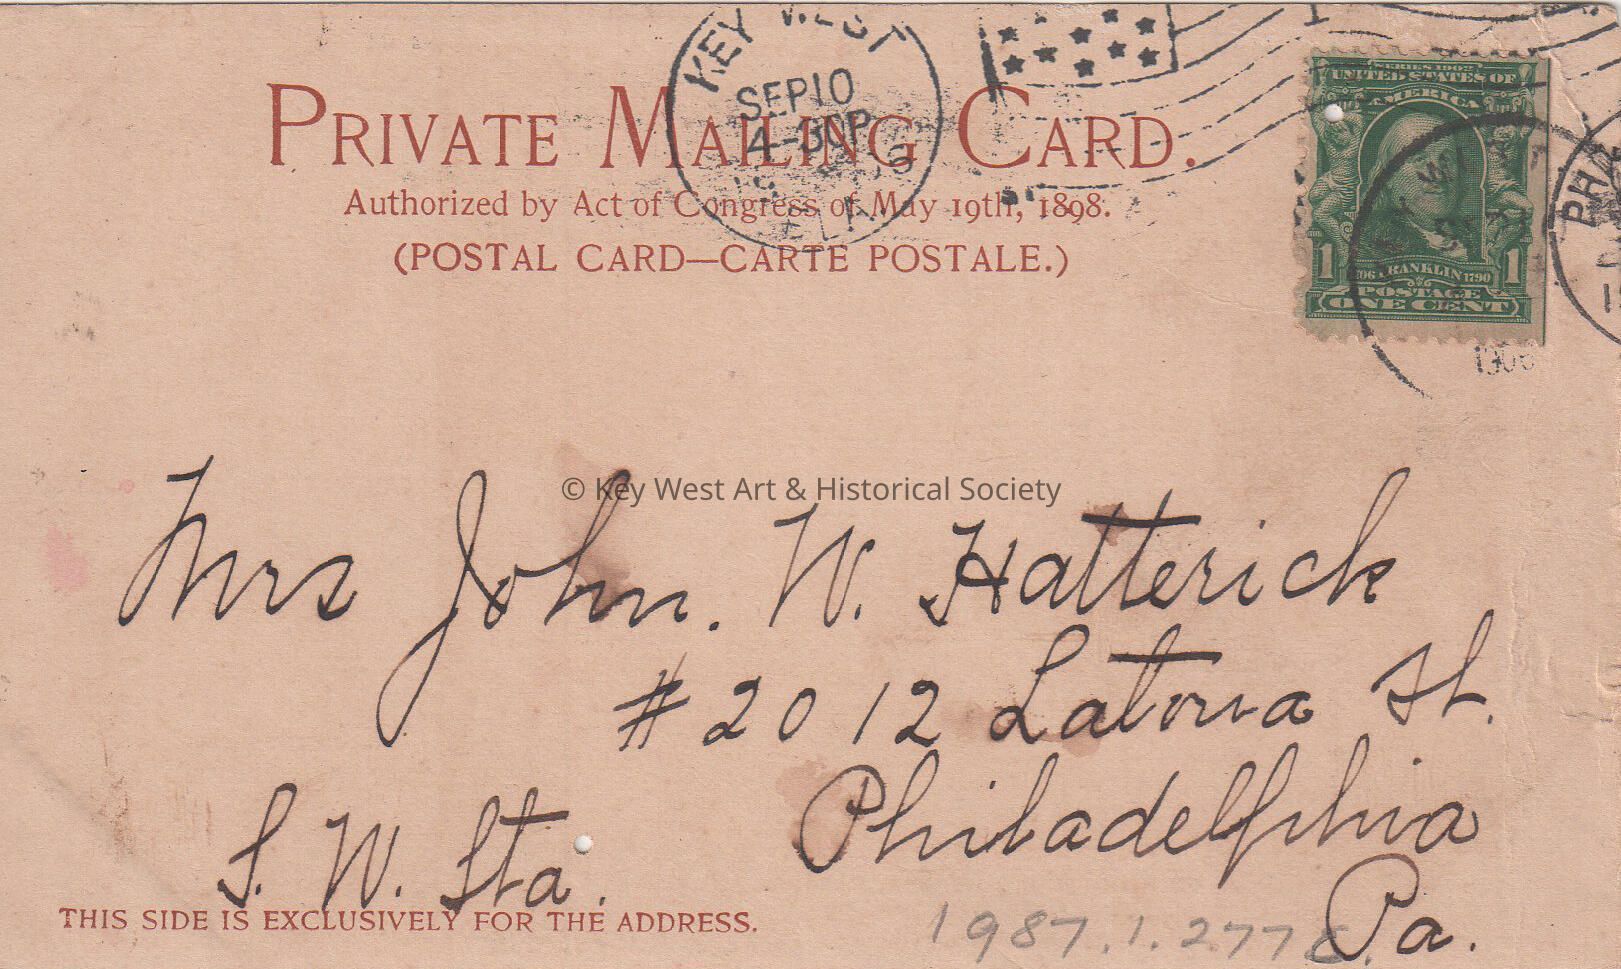 KEY WEST
SEP 10
4-30P
FLA.
PRIVATE MAILING CARD.
Authorized by Act of Congress of May 19th, 1898.
(POSTAL CARD—CARTE POSTALE.)
SERIES 1902
UNITED STATES OF
AMERICA
1 FRANKLIN 1790 1
POSTAGE
ONE CENT
1906
PHA
© Key West Art & Historical Society
Mrs John. W. Hatterick
# 2012 Latona St.
Philadelphia
S. W. Sta.
Pa.
THIS SIDE IS EXCLUSIVELY FOR THE ADDRESS.
1987.1.2778